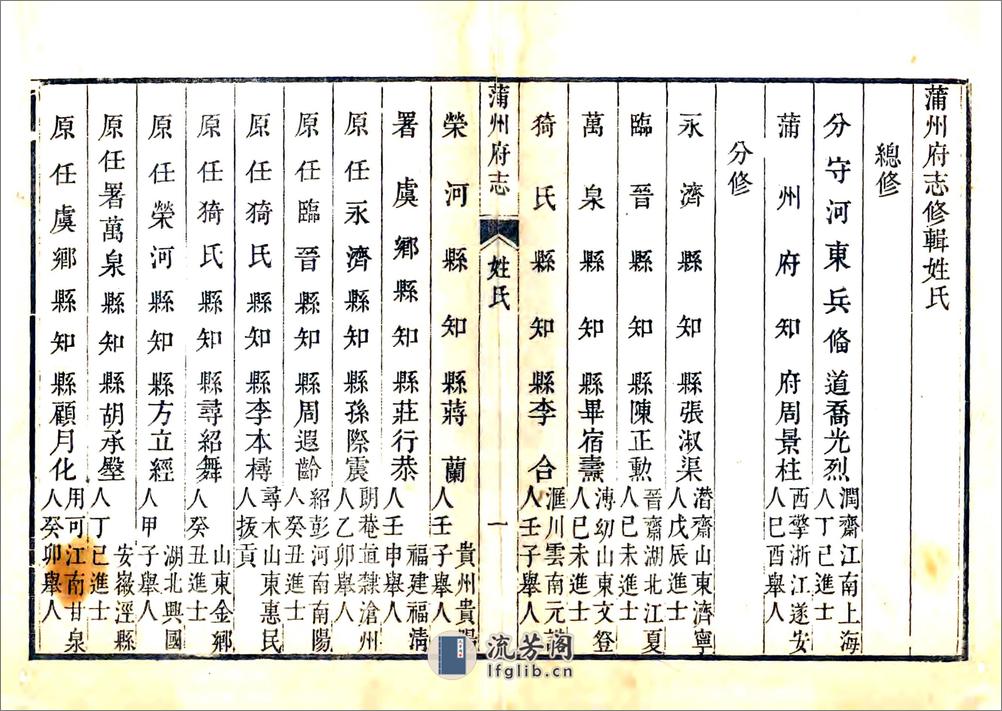 蒲州府志修輯姓氏
總修
分守河東兵備道喬光烈潤齋江南上海人丁巳進士
蒲州府知府周景柱西擎浙江遂安人己酉舉人
分修
永濟縣知縣張淑渠潛齋山東濟寧人戊辰進士
臨晉縣知縣陳正勲晉齋湖北江夏人己未進士
萬泉縣知縣畢宿燾溥幼山東文登人己未進士
猗氏縣知縣李合滙川雲南元謀人壬子舉人
蒲州府志
姓氏
一
榮河縣知縣蔣蘭貴州貴陽人壬子舉人
署虞鄉縣知縣莊行恭福建福清人壬申舉人
原任永濟縣知縣孫際震朗菴直隸滄州人乙卯舉人
原任臨晉縣知縣周遐齡紹彭河南南陽人癸丑進士
原任猗氏縣知縣李本樽尋木山東惠民人拔貢
原任猗氏縣知縣尋紹舞山東金鄉人癸丑進士
原任榮河縣知縣方立經湖北興國人甲子舉人
原任署萬泉縣知縣胡承壂安徽涇縣人丁巳進士
原任虞鄉縣知縣顧月化用可江南甘泉人癸卯舉人
流芳阁
lfglib.cn